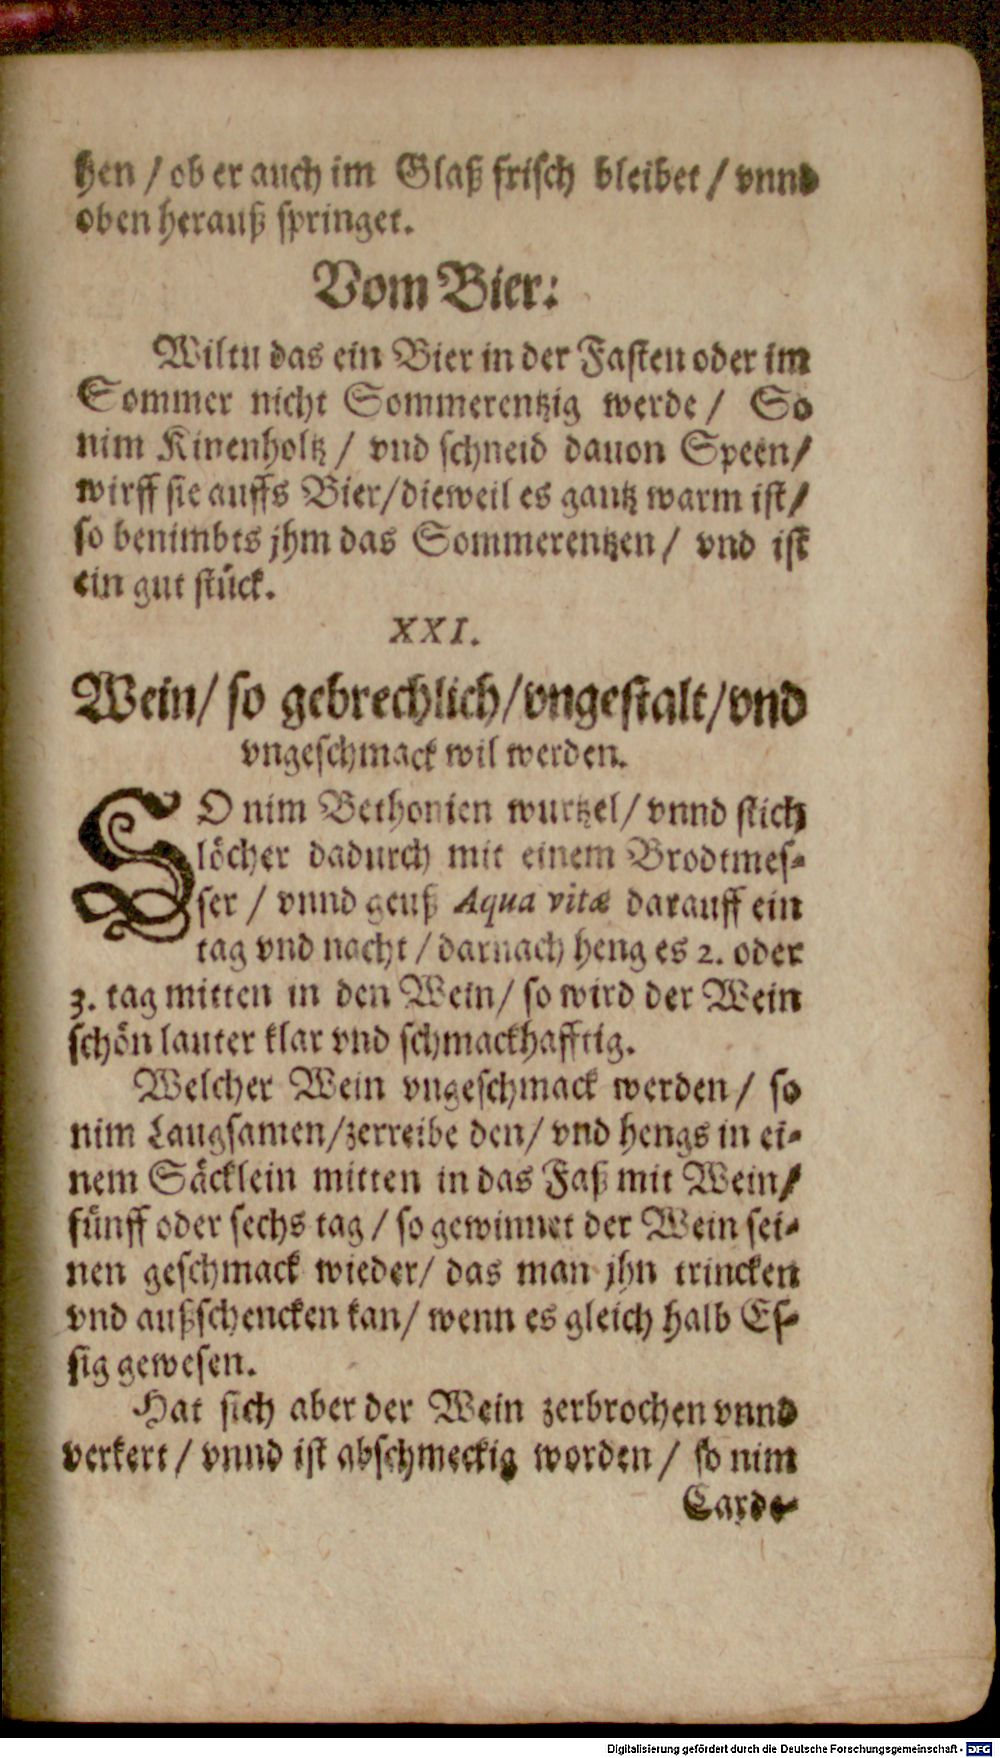 hen / ob er auch im Glaß frisch bleibet / vnnd
oben herauß springet.
Vom Bier:
Wiltu das ein Bier in der Fasten oder im
Sommer nicht Sommerentzig werde / So
nim Kinenholtz / vnd schneid dauon Speen /
wirff sie auffs Bier / dieweil es gantz warm ist /
so benimbts jhm das Sommerentzen / vnd ist
ein gut stück.
XXI.
Wein / so gebrechlich / vngestalt / vnd
vngeschmack wil werden.
SO nim Bethonien wurtzel / vnnd stich
löcher dadurch mit einem Brodtmes-
ser / vnnd geuß Aqua vitæ darauff ein
tag vnd nacht / darnach heng es 2. oder
3. tag mitten in den Wein / so wird der Wein
schön lauter klar vnd schmackhafftig.
Welcher Wein vngeschmack werden / so
nim Laugsamen / zerreibe den / vnd hengs in ei-
nem Säcklein mitten in das Faß mit Wein /
fünff oder sechs tag / so gewinnet der Wein sei-
nen geschmack wieder / das man jhn trincken
vnd außschencken kan / wenn es gleich halb Es-
sig gewesen.
Hat sich aber der Wein zerbrochen vnnd
verkert / vnnd ist abschmeckig worden / so nim
Carde-
Digitalisierung gefördert durch die Deutsche Forschungsgemeinschaft - DFG